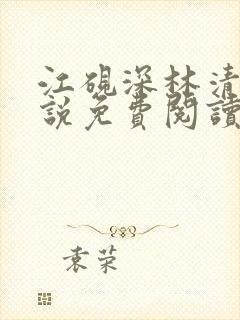 江硯深林清
說免費閱讀
袁荣